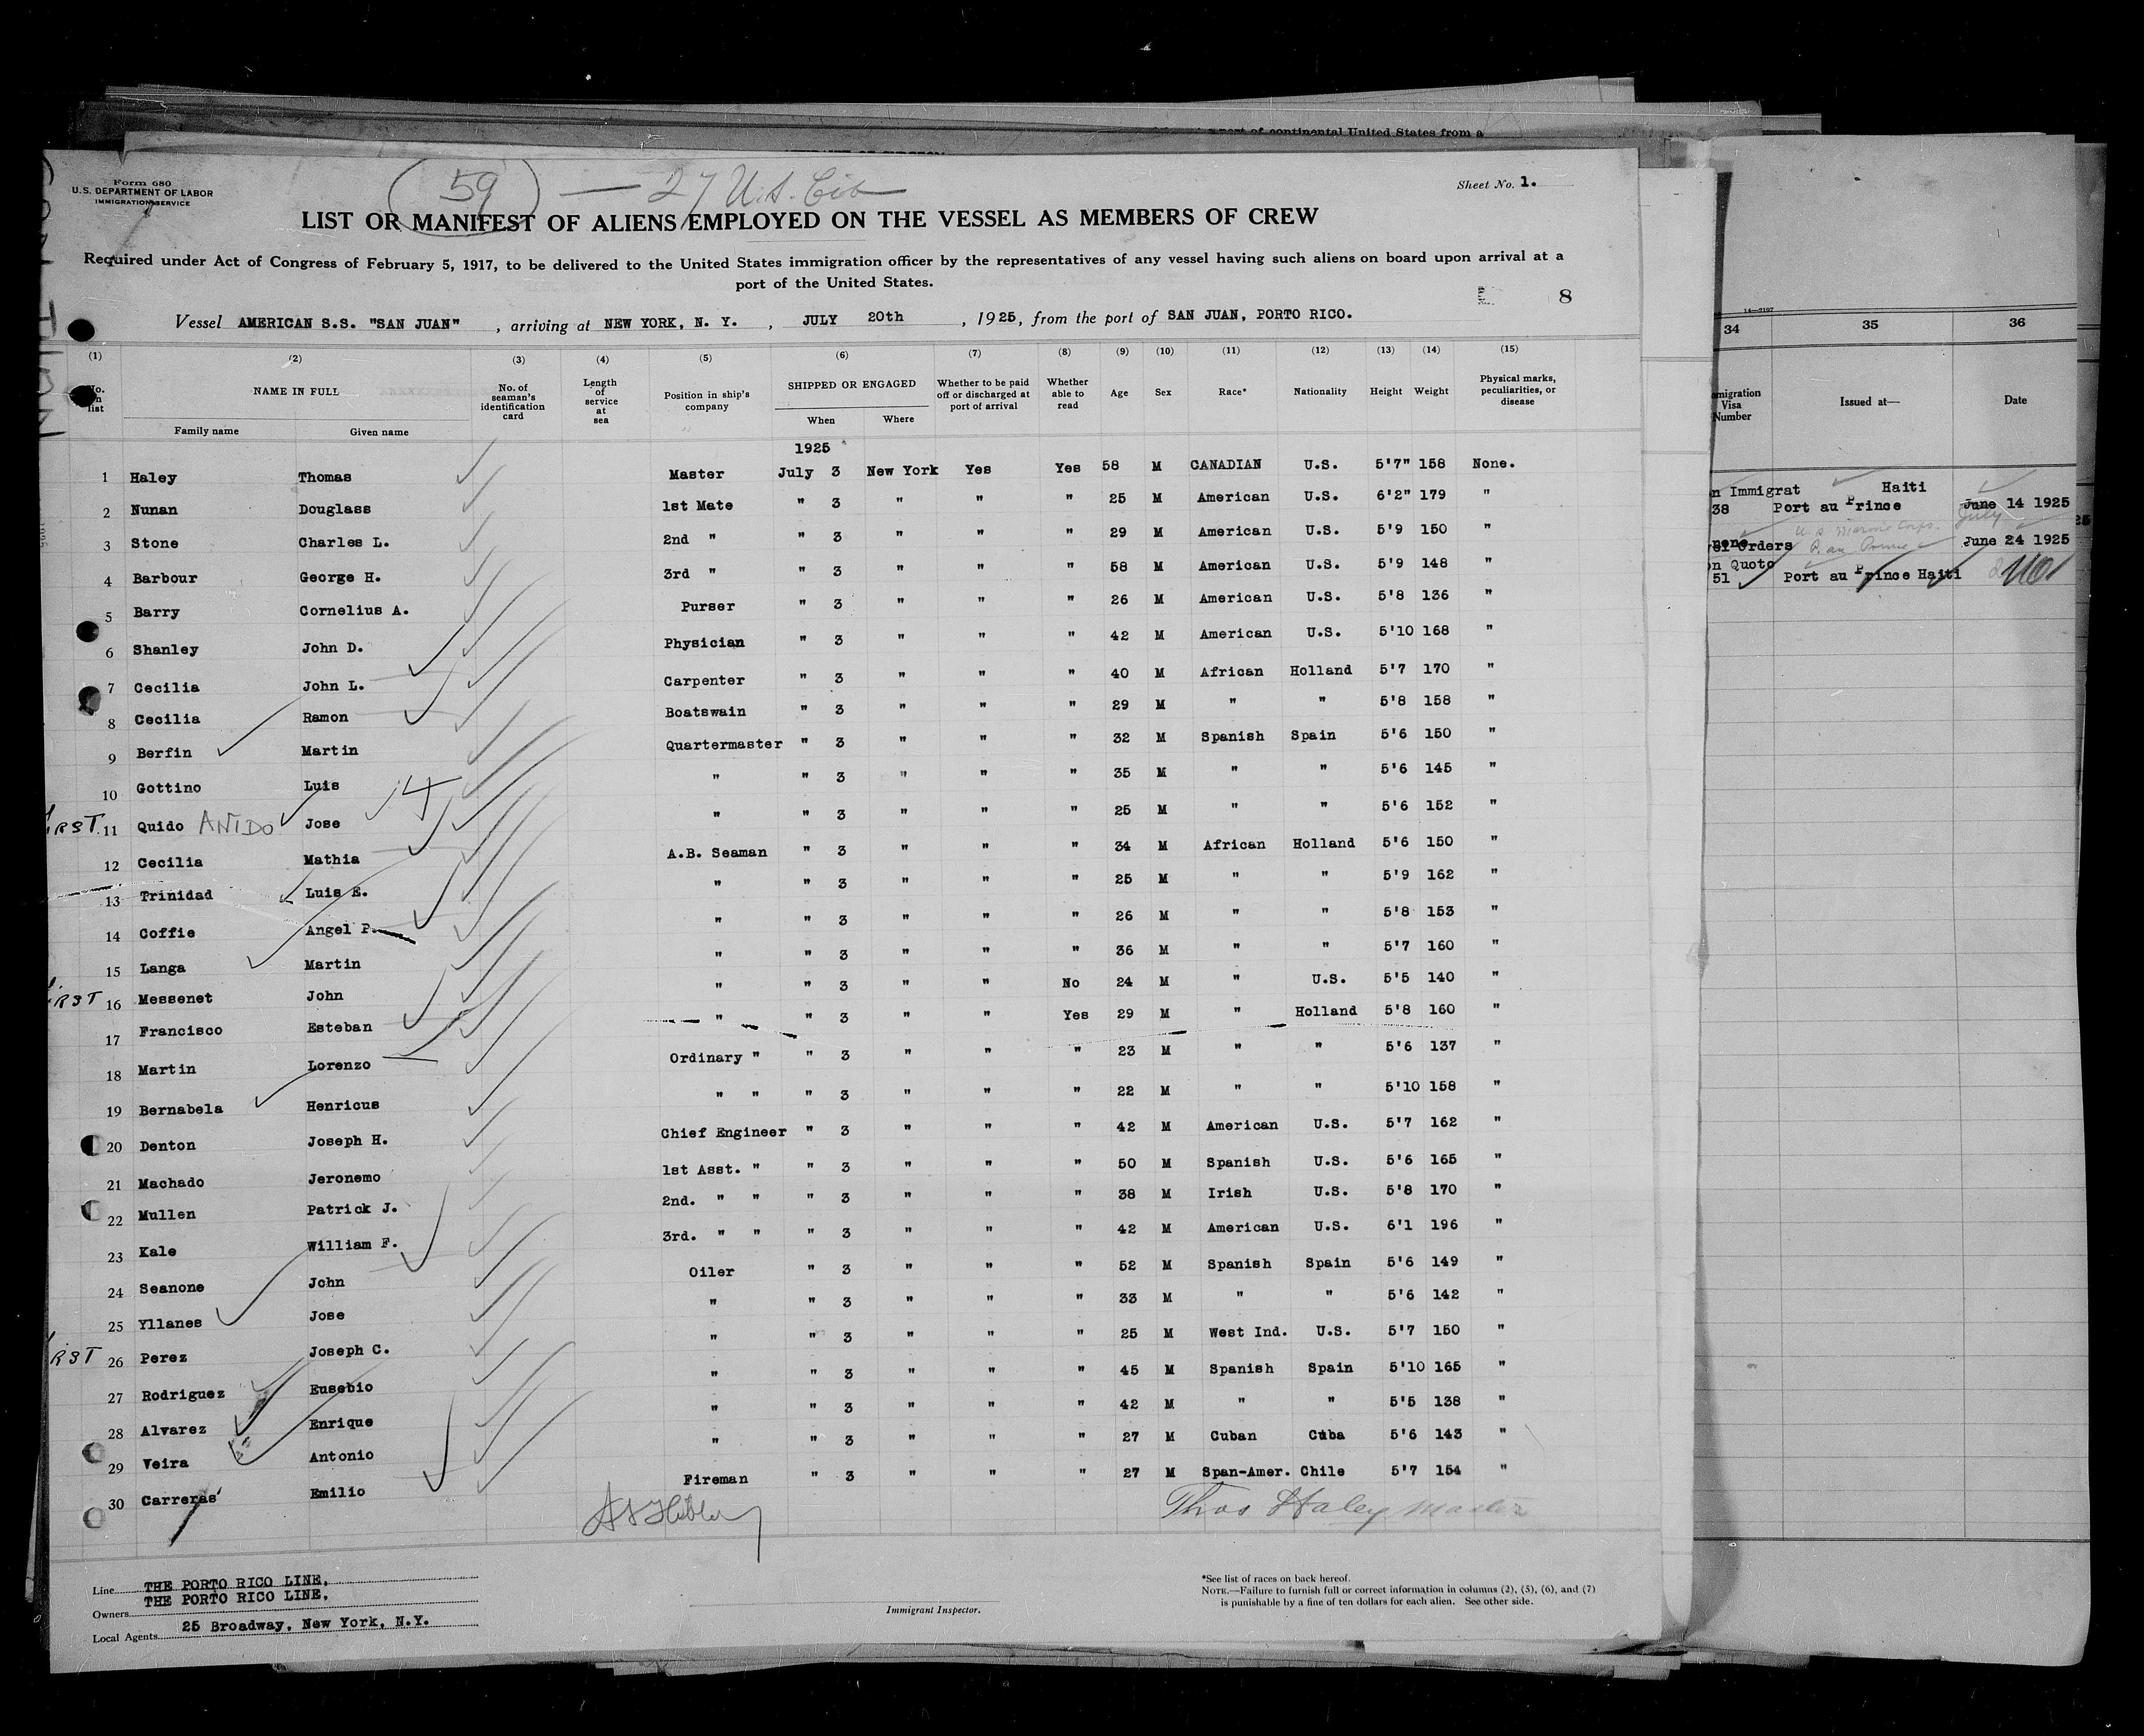 port of continental United States from a
Form 680
U.S. DEPARTMENT OF LABOR
IMMIGRATION SERVICE
59 — 27 U.S. Cit
Sheet No. 1.
LIST OR MANIFEST OF ALIENS EMPLOYED ON THE VESSEL AS MEMBERS OF CREW
Required under Act of Congress of February 5, 1917, to be delivered to the United States immigration officer by the representatives of any vessel having such aliens on board upon arrival at a
port of the United States.
8
Vessel AMERICAN S.S. "SAN JUAN" , arriving at NEW YORK, N. Y. , JULY 20th , 1925, from the port of SAN JUAN, PORTO RICO.
(1) (2) (3) (4) (5) (6) (7) (8) (9) (10) (11) (12) (13) (14) (15)
No. on list NAME IN FULL Family name Given name No. of seaman's identification card Length of service at sea Position in ship's company SHIPPED OR ENGAGED When Where Whether to be paid off or discharged at port of arrival Whether able to read Age Sex Race* Nationality Height Weight Physical marks, peculiarities, or disease
1925
1 Haley Thomas Master July 3 New York Yes Yes 58 M CANADIAN U.S. 5'7" 158 None.
2 Nunan Douglass 1st Mate " 3 " " " 25 M American U.S. 6'2" 179 "
3 Stone Charles L. 2nd " " 3 " " " 29 M American U.S. 5'9 150 "
4 Barbour George H. 3rd " " 3 " " " 58 M American U.S. 5'9 148 "
5 Barry Cornelius A. Purser " 3 " " " 26 M American U.S. 5'8 136 "
6 Shanley John D. Physician " 3 " " " 42 M American U.S. 5'10 168 "
7 Cecilia John L. Carpenter " 3 " " " 40 M African Holland 5'7 170 "
8 Cecilia Ramon Boatswain " 3 " " " 29 M " " 5'8 158 "
9 Berfin Martin Quartermaster " 3 " " " 32 M Spanish Spain 5'6 150 "
10 Gottino Luis " " 3 " " " 35 M " " 5'6 145 "
RST. 11 Quido ANIDO Jose " " 3 " " " 25 M " " 5'6 152 "
12 Cecilia Mathia A.B. Seaman " 3 " " " 34 M African Holland 5'6 150 "
13 Trinidad Luis E. " " 3 " " " 25 M " " 5'9 162 "
14 Coffie Angel P. " " 3 " " " 26 M " " 5'8 153 "
15 Langa Martin " " 3 " " " 36 M " " 5'7 160 "
RST 16 Messenet John " " 3 " " No 24 M " U.S. 5'5 140 "
17 Francisco Esteban " " 3 " " Yes 29 M " Holland 5'8 160 "
18 Martin Lorenzo Ordinary " " 3 " " " 23 M " " 5'6 137 "
19 Bernabela Henricus " " " 3 " " " 22 M " " 5'10 158 "
20 Denton Joseph H. Chief Engineer " 3 " " " 42 M American U.S. 5'7 162 "
21 Machado Jeronemo 1st Asst. " " 3 " " " 50 M Spanish U.S. 5'6 165 "
22 Mullen Patrick J. 2nd. " " " 3 " " " 38 M Irish U.S. 5'8 170 "
23 Kale William F. 3rd. " " " 3 " " " 42 M American U.S. 6'1 196 "
24 Seanone John Oiler " 3 " " " 52 M Spanish Spain 5'6 149 "
25 Yllanes Jose " " 3 " " " 33 M " " 5'6 142 "
RST 26 Perez Joseph C. " " 3 " " " 25 M West Ind. U.S. 5'7 150 "
27 Rodriguez Eusebio " " 3 " " " 45 M Spanish Spain 5'10 165 "
28 Alvarez Enrique " " 3 " " " 42 M " " 5'5 138 "
29 Veira Antonio " " 3 " " " 27 M Cuban Cuba 5'6 143 "
30 Carreras Emilio Fireman " 3 " " " 27 M Span-Amer. Chile 5'7 154 "
Thos Haley Master
Line THE PORTO RICO LINE,
Owners THE PORTO RICO LINE,
Local Agents 25 Broadway, New York, N.Y.
Immigrant Inspector.
*See list of races on back hereof.
NOTE.—Failure to furnish full or correct information in columns (2), (5), (6), and (7)
is punishable by a fine of ten dollars for each alien. See other side.
14—2197
34 35 36
migration Visa Number Issued at— Date
n Immigrat Haiti
38 Port au Prince June 14 1925
July
U.S. Marine Corps.
none
vel Orders P. au Prince June 24 1925
n Quota
51 Port au Prince Haiti